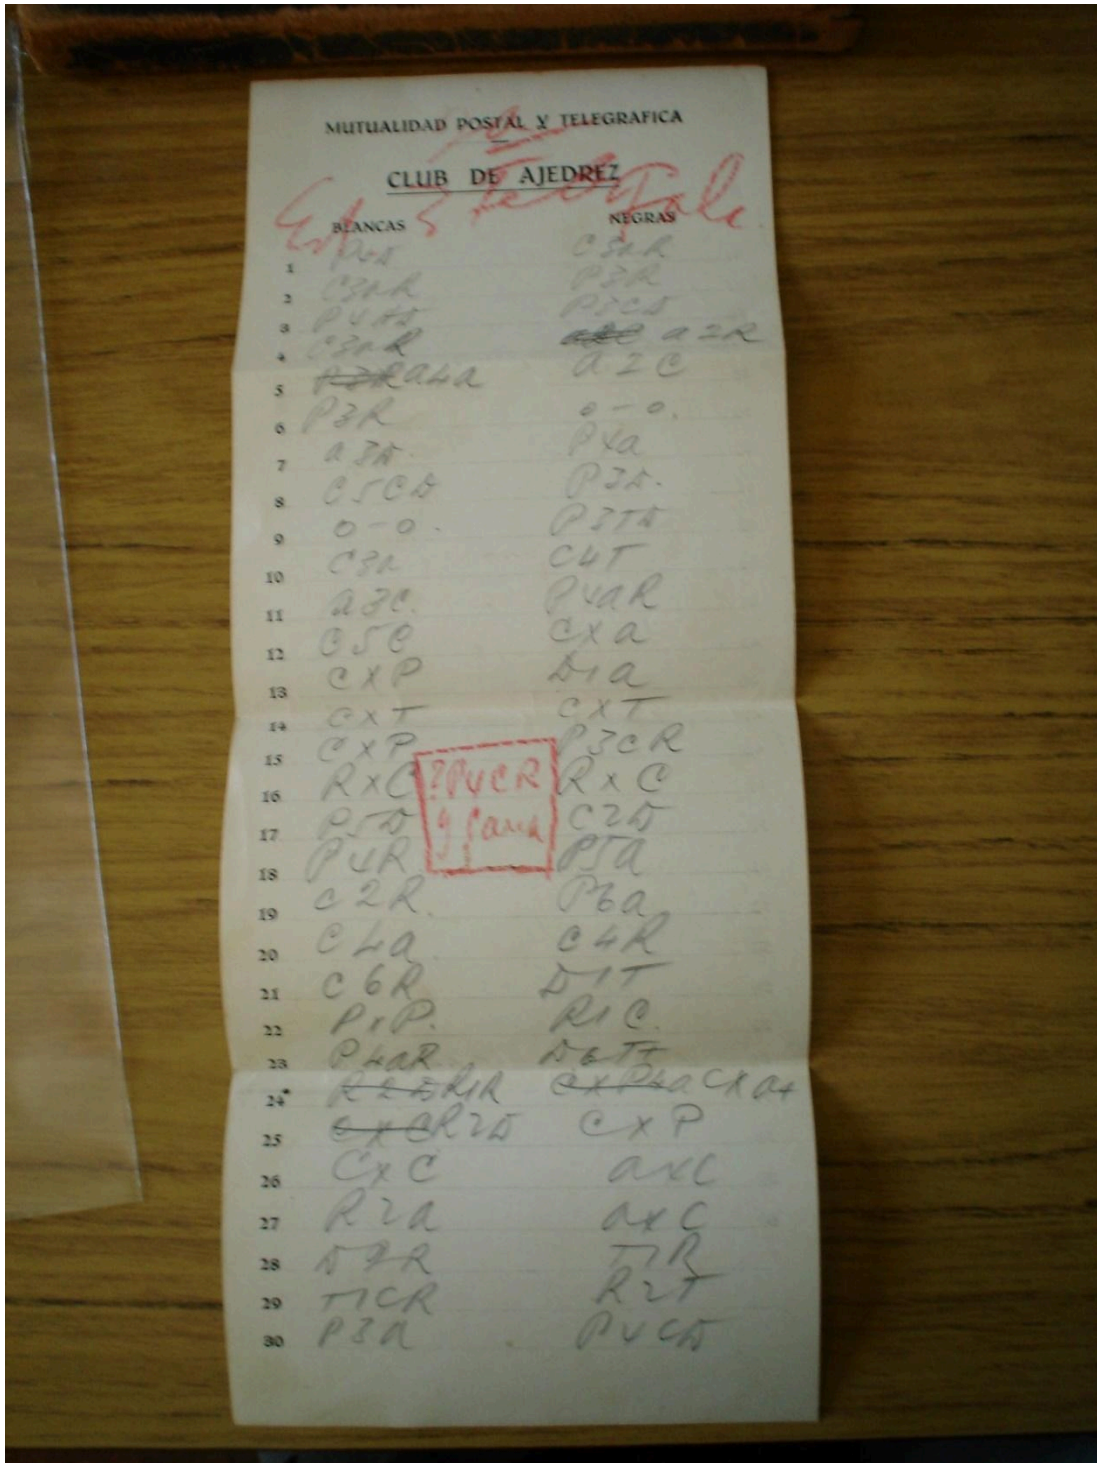 MUTUALIDAD POSTAL Y TELEGRAFICA
CLUB DE AJEDREZ
BLANCAS NEGRAS
1 P4D C3AR
2 C3AR P3R
3 P4AD P3CD
4 C3AR A2R
5 A4A A2C
6 P3R 0-0.
7 A3D P4A
8 C5CD P3D.
9 0-0. P3TD
10 C3A C4T
11 A3C. P4AR
12 C5C CXA
13 CXP D1A
14 CXT CXT
15 CXP P3CR
16 RXC ?P4CR RXC
17 P5D y gana C2D
18 P4R P5A
19 C2R. P6A
20 C4A C4R
21 C6R D1T
22 PXP. R1C.
23 P4AR D6T+
24 R1R CXA+
25 R2D CXP
26 CXC AXC
27 R2A AXC
28 D7R T1R
29 T1CR R2T
30 P3A P4CD